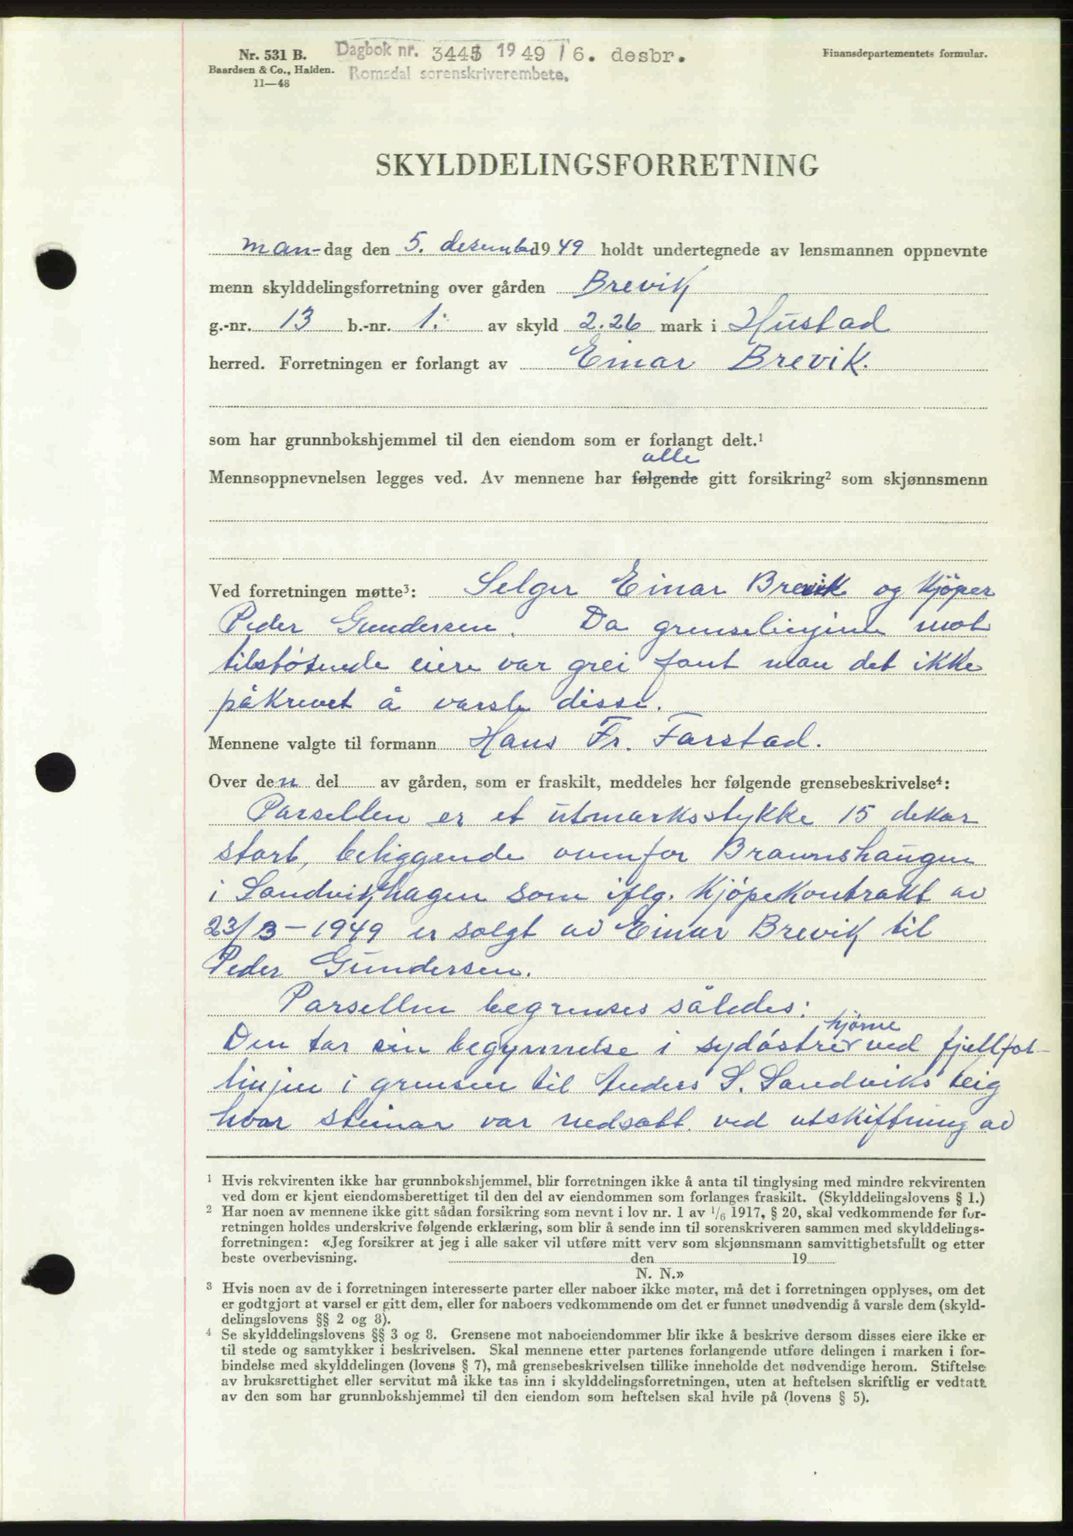 Nr. 531 B.
Baardsen & Co., Halden.
11—48
Dagbok nr. 3445 1949 / 6. desbr.
Romsdal sorenskriverembete.
Finansdepartementets formular.
SKYLDDELINGSFORRETNING
man-dag den 5. desember 1949 holdt undertegnede av lensmannen oppnevnte
menn skylddelingsforretning over gården Brevik
g.-nr. 13 b.-nr. 1: av skyld 2.26 mark i Hustad
herred. Forretningen er forlangt av Einar Brevik.
som har grunnbokshjemmel til den eiendom som er forlangt delt.¹
alle
Mennsoppnevnelsen legges ved. Av mennene har følgende gitt forsikring² som skjønnsmenn
Ved forretningen møtte³: Selger Einar Brevik og kjöper
Peder Gundersen. Da grenselinjene mot
tilstötende eiere var grei fant man det ikke
påkrevet å varsle disse.
Mennene valgte til formann Hans Fr. Farstad.
Over den del av gården, som er fraskilt, meddeles her følgende grensebeskrivelse⁴:
Parsellen er et utmarksstykke 15 dekar
stort, beliggende ovenfor Braunshaugen
i Sandvikhagen som iflg. kjöpekontrakt av
23/3-1949 er solgt av Einar Brevik til
Peder Gundersen.
Parsellen begrenses således:
hjörne
Den tar sin begynnelse i sydöstre ved fjellfot-
linjen i grensen til Anders S. Sandviks teig
hvor steinar var nedsatt ved utskiftning av
¹ Hvis rekvirenten ikke har grunnbokshjemmel, blir forretningen ikke å anta til tinglysing med mindre rekvirenten
ved dom er kjent eiendomsberettiget til den del av eiendommen som forlanges fraskilt. (Skylddelingslovens § 1.)
² Har noen av mennene ikke gitt sådan forsikring som nevnt i lov nr. 1 av 1/6 1917, § 20, skal vedkommende før for-
retningen holdes underskrive følgende erklæring, som blir å sende inn til sorenskriveren sammen med skylddelings-
forretningen: «Jeg forsikrer at jeg i alle saker vil utføre mitt verv som skjønnsmann samvittighetsfullt og etter
beste overbevisning. den 19
N. N.»
³ Hvis noen av de i forretningen interesserte parter eller naboer ikke møter, må det i forretningen opplyses, om det
er godtgjort at varsel er gitt dem, eller for naboers vedkommende om det er funnet unødvendig å varsle dem (skyld-
delingslovens §§ 2 og 8).
⁴ Se skylddelingslovens §§ 3 og 8. Grensene mot naboeiendommer blir ikke å beskrive dersom disses eiere ikke er
til stede og samtykker i beskrivelsen. Skal mennene etter partenes forlangende utføre delingen i marken i for-
bindelse med skylddelingen (lovens § 7), må grensebeskrivelsen tillike inneholde det nødvendige herom. Stiftelse
av bruksrettighet eller servitut må ikke tas inn i skylddelingsforretningen, uten at heftelsen skriftlig er vedtatt
av den som har grunnbokshjemmel til den eiendom som heftelsen skal hvile på (lovens § 5).